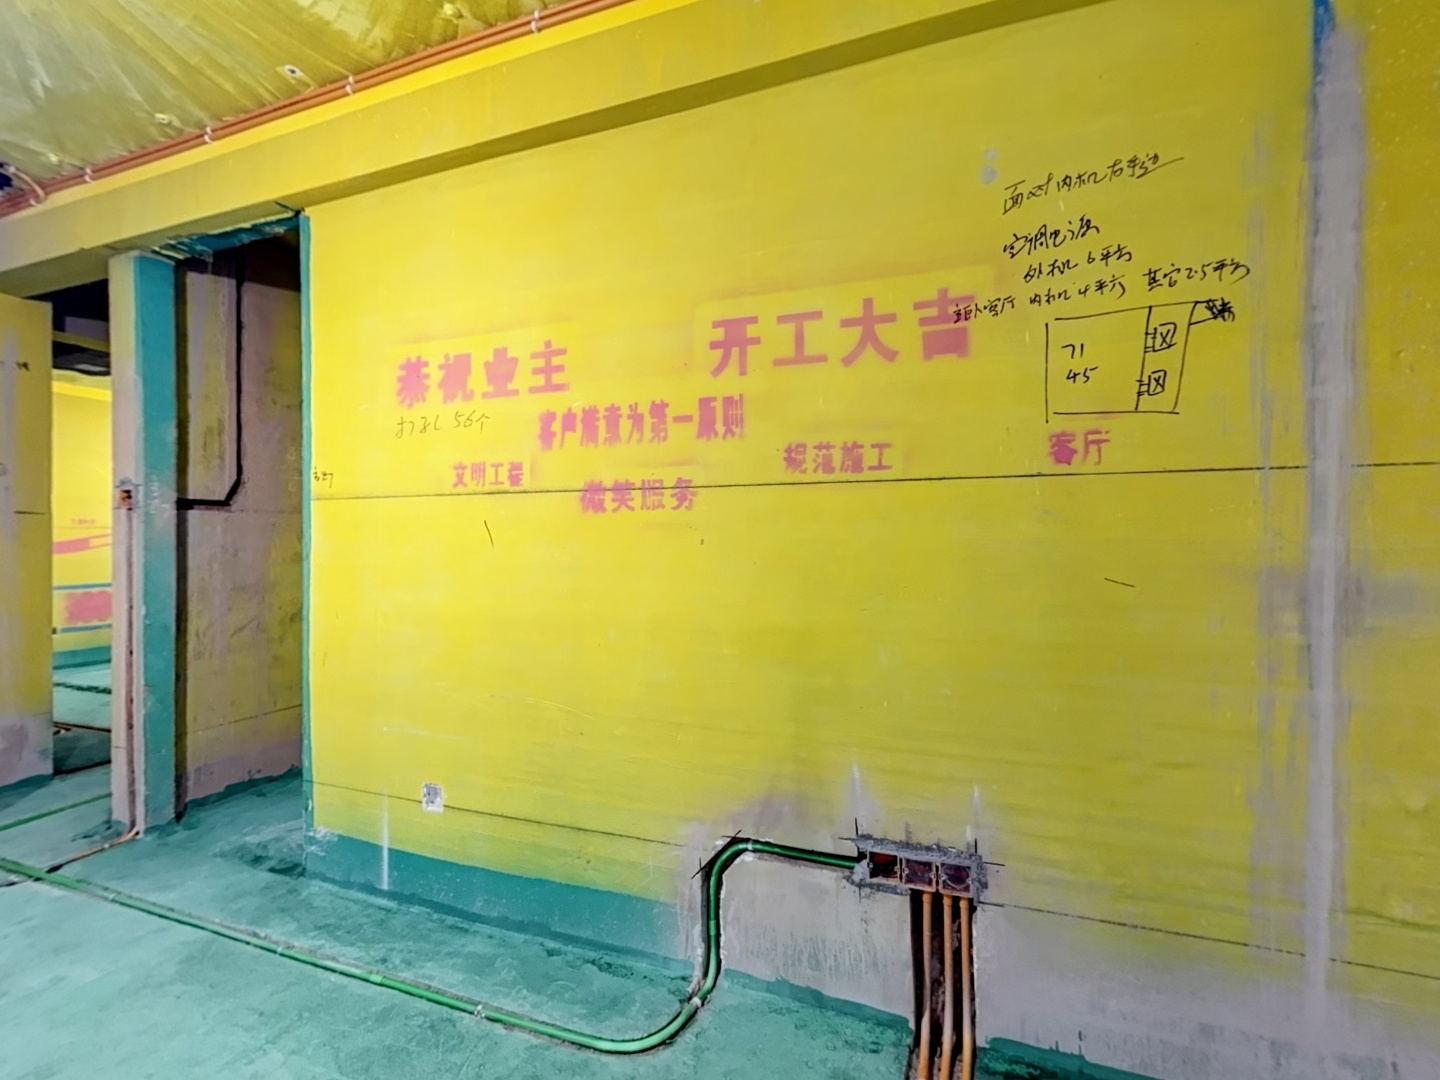 面对内机右手边
空调电源
外机 6平方
主卧客厅 内机 4平方 其它2.5平方
71
45
恭祝业主 开工大吉
打孔 56个
客户满意为第一原则
文明工程 规范施工 客厅
微笑服务